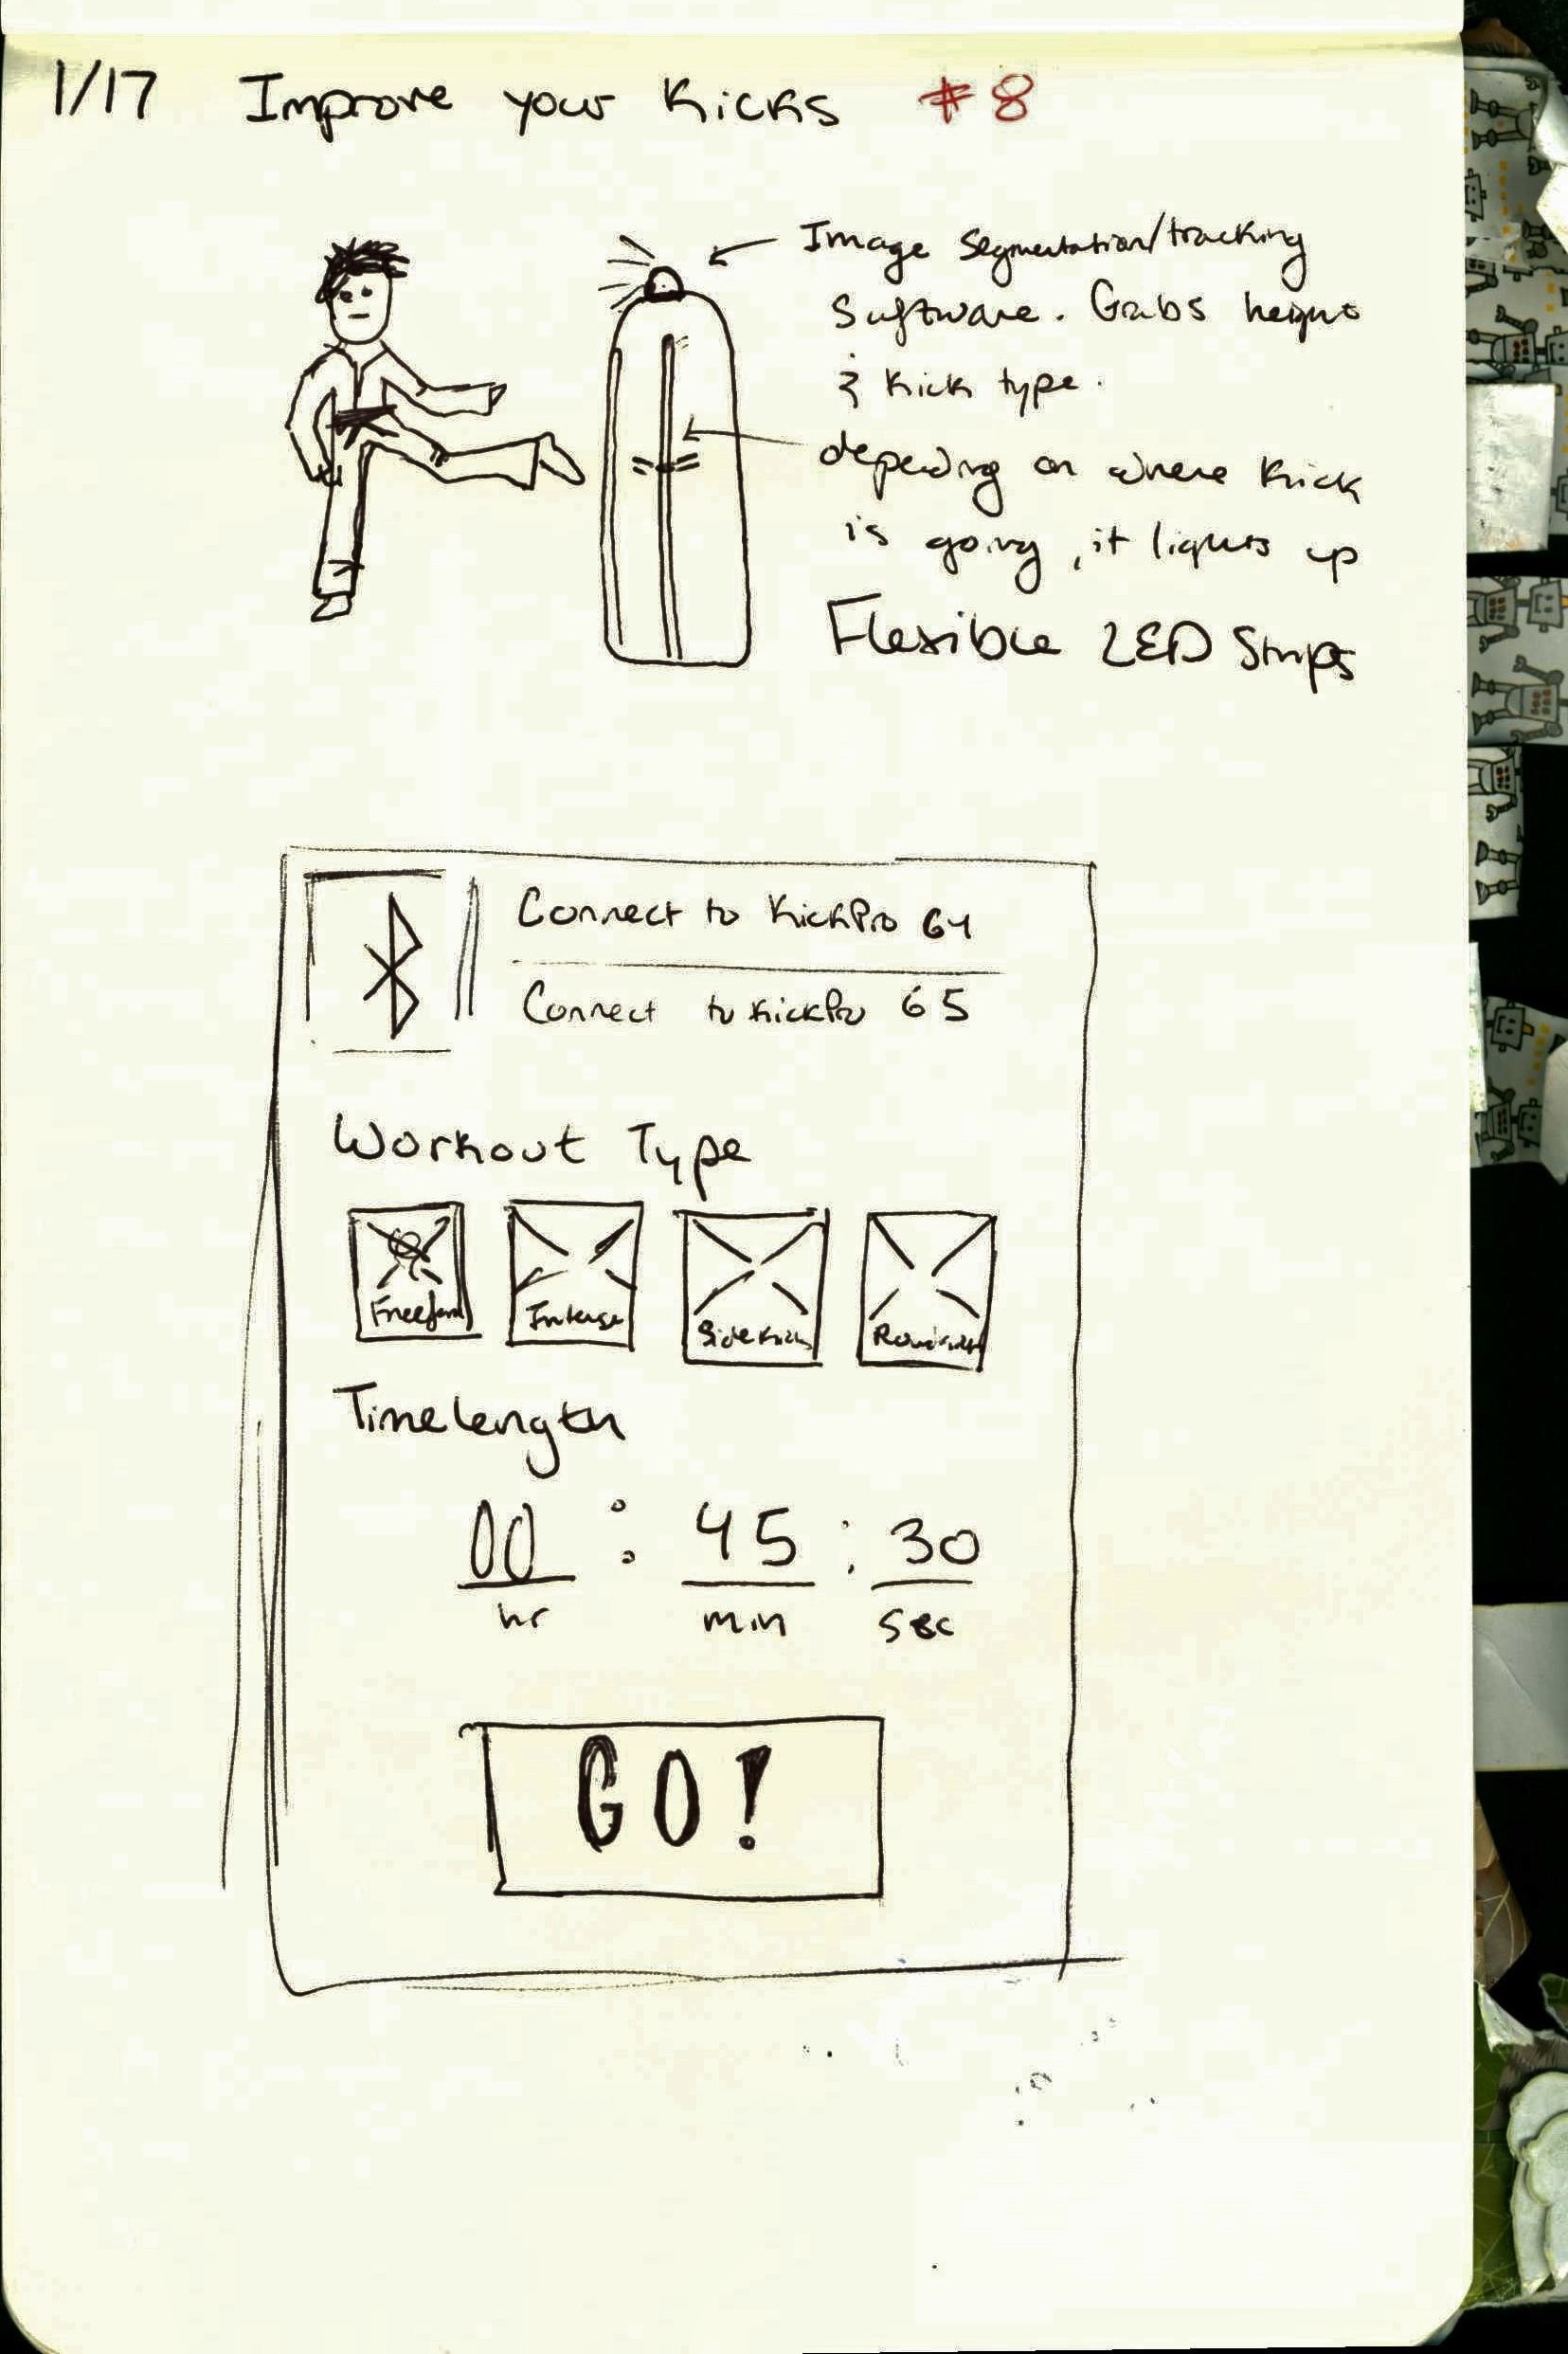 1/17 Improve your Kicks #8
Image Segmentation/tracking
Software. Grabs height
& kick type.
depending on where kick
is going, it lights up
Flexible LED Strips
Connect to KickPro 64
Connect to KickPro 65
Workout Type
Freeform Intense Sidekick
Time length
00 : 45 : 30
hr min sec
GO!